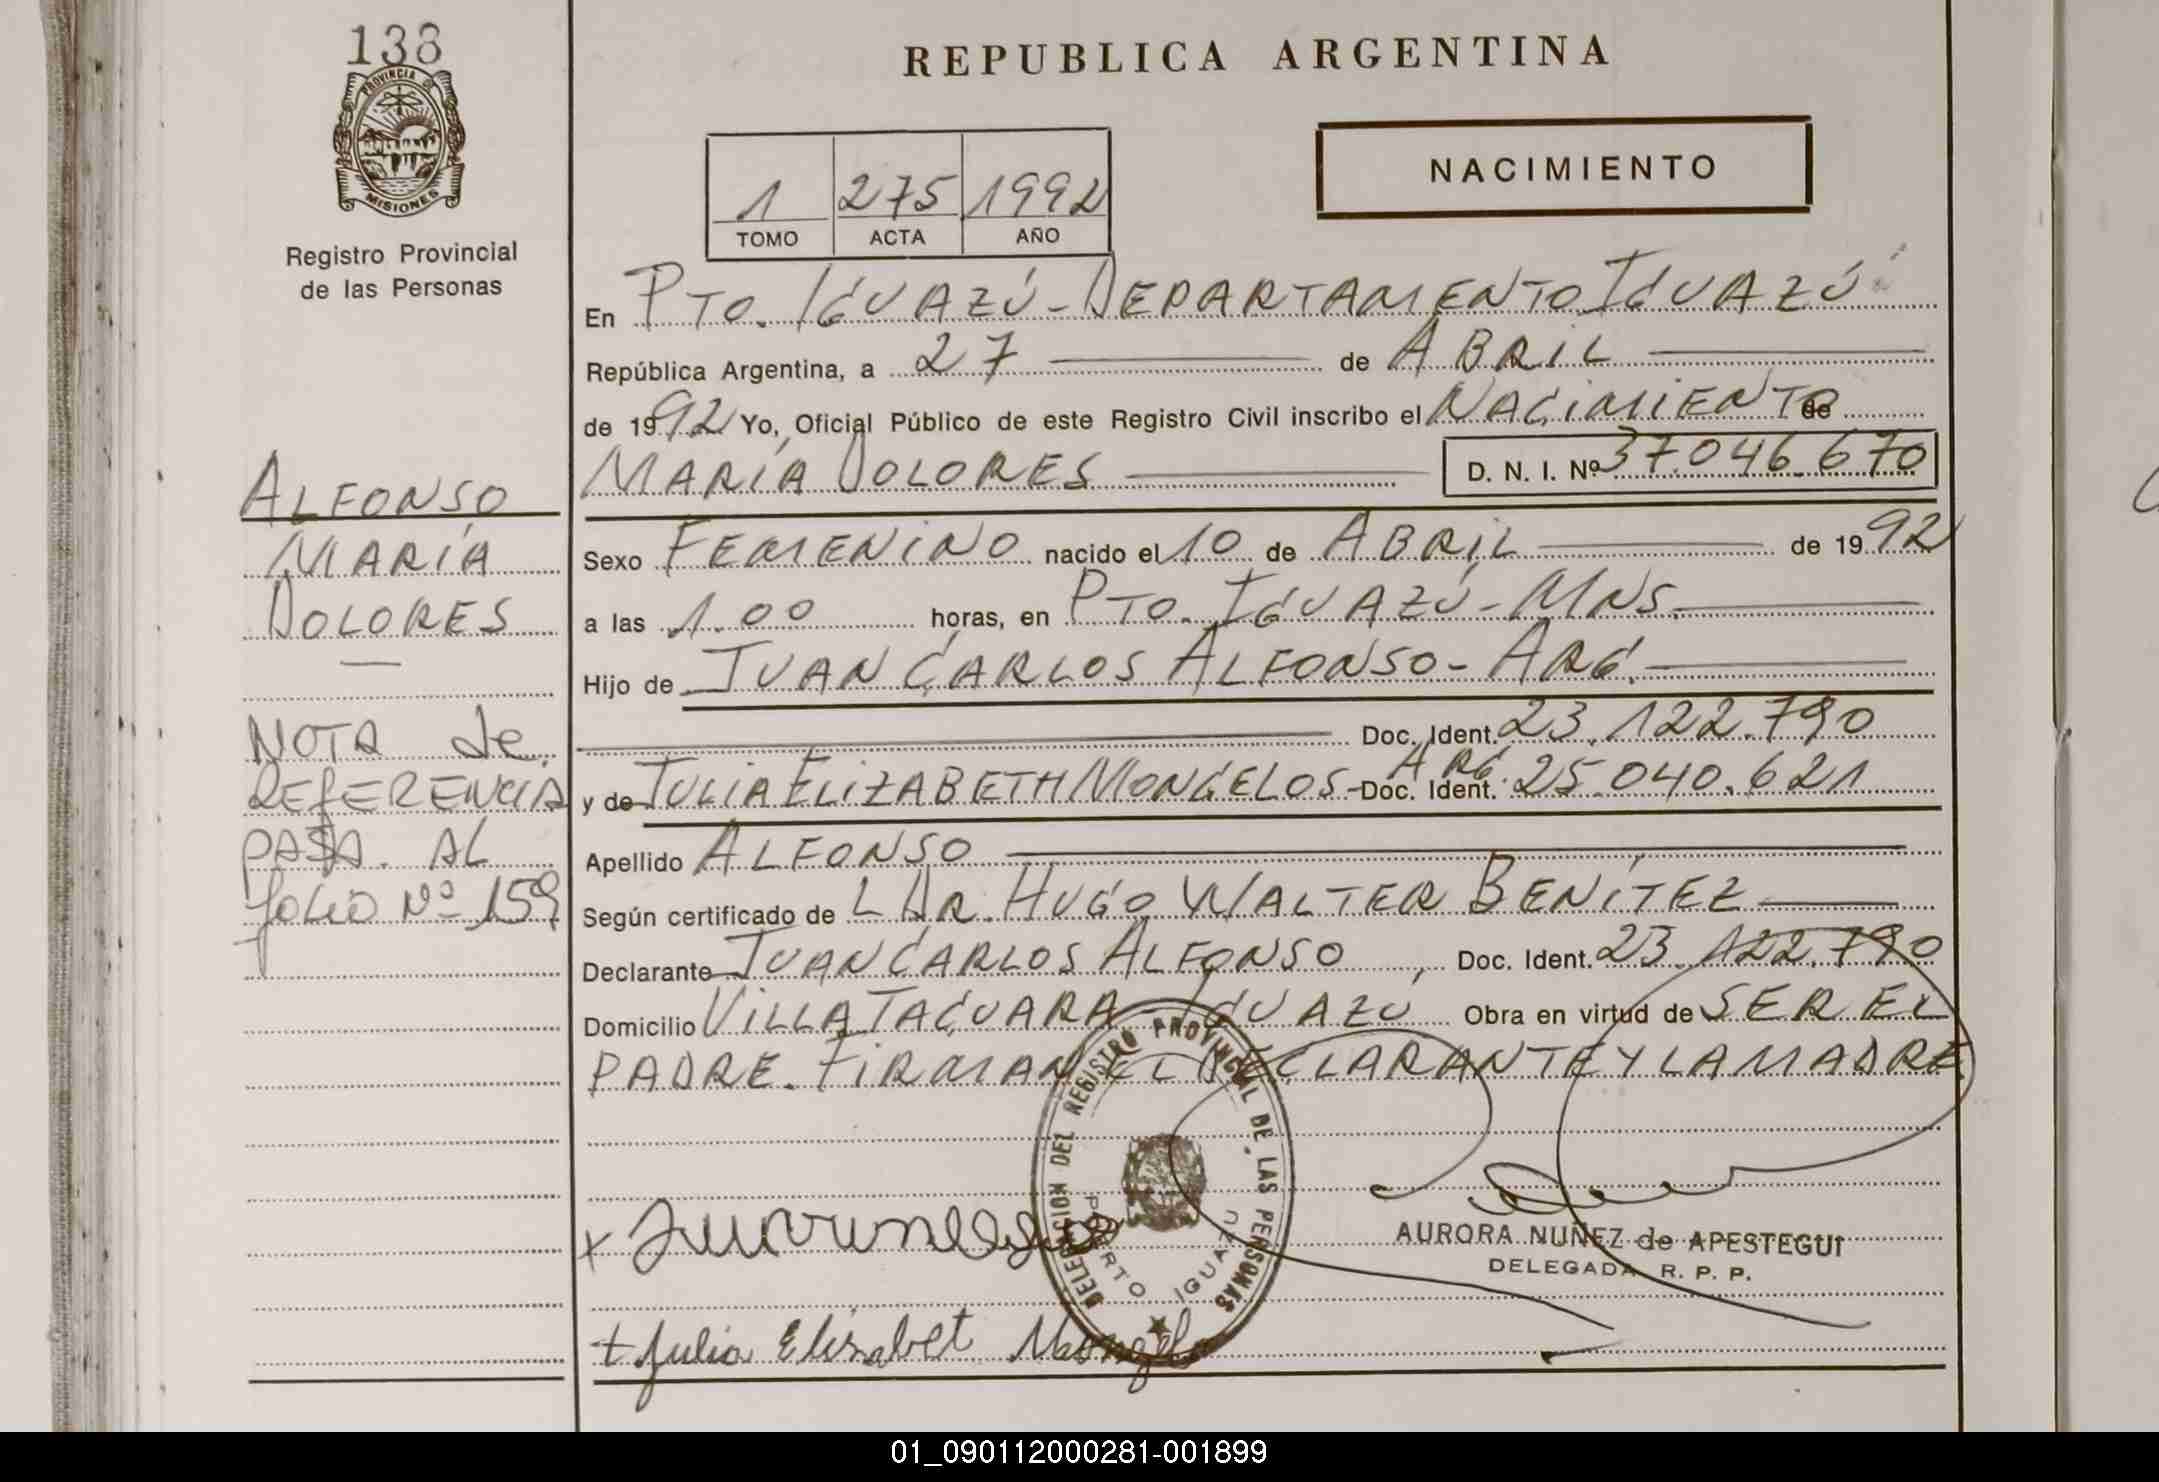 138
PROVINCIA DE
MISIONES
Registro Provincial
de las Personas
ALFONSO
MARÍA
DOLORES
NOTA de
REFERENCIA
PASA AL
folio Nº 159
REPUBLICA ARGENTINA
NACIMIENTO
1 275 1992
TOMO ACTA AÑO
En PTO. IGUAZÚ - DEPARTAMENTO IGUAZÚ
República Argentina, a 27 de ABRIL
de 1992 Yo, Oficial Público de este Registro Civil inscribo el NACIMIENTO de
MARÍA DOLORES D. N. I. Nº 37.046.670
Sexo FEMENINO nacido el 10 de ABRIL de 1992
a las 1.00 horas, en PTO. IGUAZÚ - MNS.
Hijo de JUAN CARLOS ALFONSO - ARG.
Doc. Ident. 23.122.790
y de JULIA ELIZABETH MONGELOS - ARG. Doc. Ident. 25.040.621
Apellido ALFONSO
Según certificado de L DR. HUGO WALTER BENÍTEZ
Declarante JUAN CARLOS ALFONSO, Doc. Ident. 23.122.790
Domicilio VILLA TACUARA - IGUAZÚ Obra en virtud de SER EL
PADRE. FIRMAN EL DECLARANTE Y LA MADRE
DELEGACION DEL REGISTRO PROVINCIAL DE LAS PERSONAS
PUERTO IGUAZU
AURORA NUÑEZ de APESTEGUI
DELEGADA R. P. P.
+ Julia Elisabet Mongelo
01_090112000281-001899